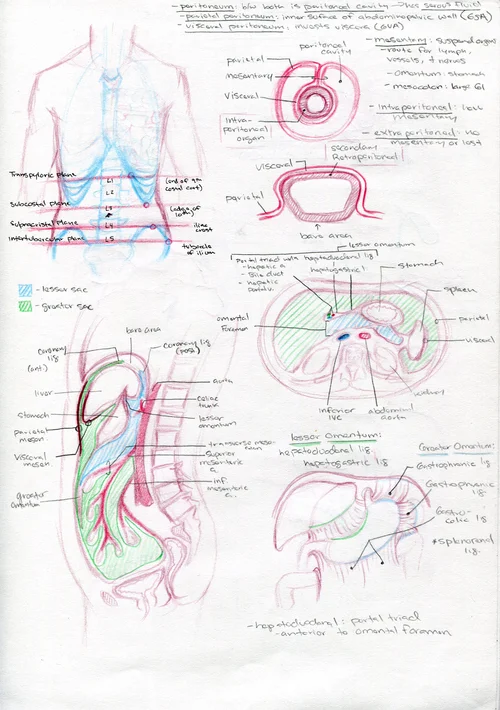 - peritoneum: b/w both is peritoneal cavity → has serous fluid
- parietal peritoneum: inner surface of abdominopelvic wall (GSA)
- visceral peritoneum: invests viscera (GVA)
parietal
mesentary
visceral
Intra-
peritoneal
organ
peritoneal
cavity
- mesentary: suspend organs
- route for lymph,
vessels, + nerves
- omentum: stomach
- mesocolon: large GI
- Intraperitoneal: have
mesentary
- extraperitoneal: no
mesentary or lost
visceral
secondary
Retroperitoneal
parietal
bare area
Transpyloric plane
L1
(end of 9th
costal cart)
L2
Subcostal plane
L3
(edge of
10th)
Supracristal plane
L4
iliac
crest
Intertubercular plane
L5
tubercle
of ilium
- lesser sac
- greater sac
lesser omentum
Portal triad w/in hepatoduodenal lig
- hepatic a
- bile duct
- hepatic
portal v.
hepatogastric
stomach
spleen
omental
foramen
parietal
visceral
kidney
inferior
IVC
abdominal
aorta
coronary
lig
(ant.)
bare area
coronary lig
(post)
liver
stomach
parietal
mesen.
visceral
mesen
greater
omentum
aorta
celiac
trunk
lesser
omentum
transverse meso-
Superior
mesenteric
a.
inf.
mesenteric
a.
lesser Omentum:
hepatoduodenal lig.
hepatogastric lig.
Greater Omentum:
Gastrophrenic lig
Gastrosplenic
lig.
Gastro-
colic lig
*splenorenal
lig.
- hepatoduodenal: portal triad
- anterior to omental foramen